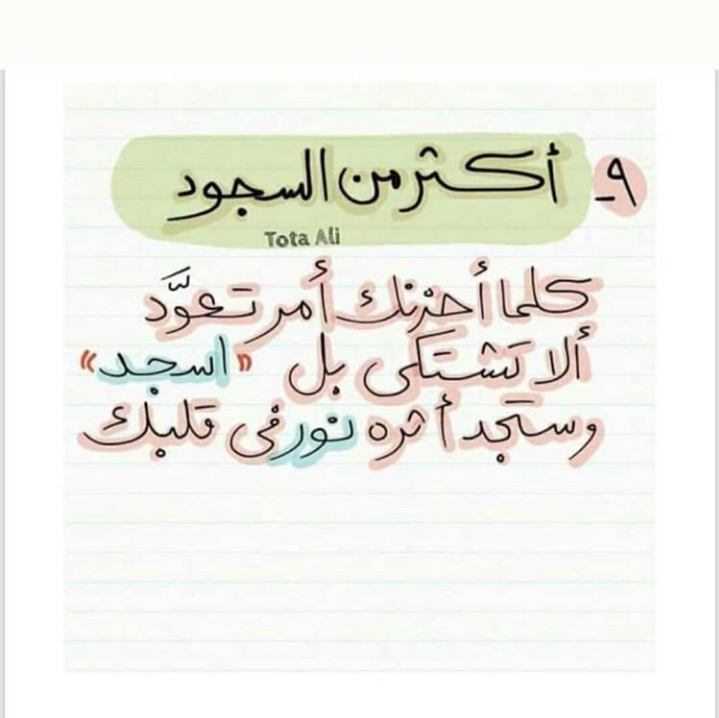 ٩- أكثر من السجود
Tota Ali
كلما أحزنك أمر تعوَّد
ألا تشتكى بل "اسجد"
وستجد أثره نور فى قلبك